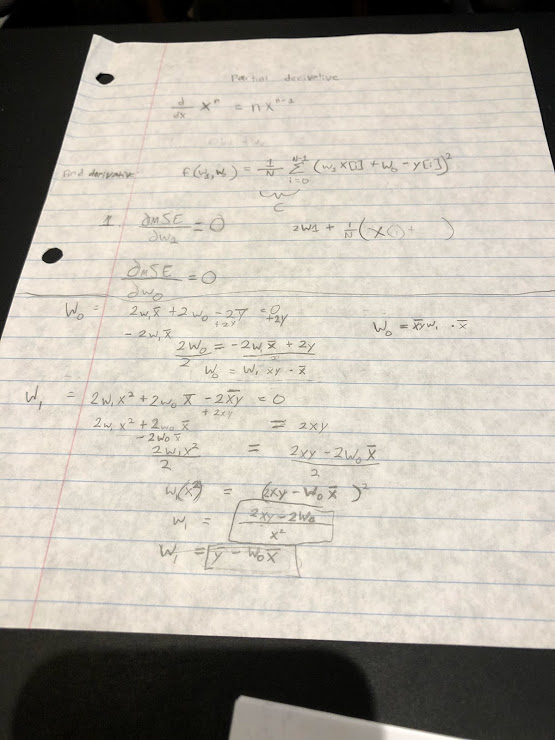 Partial derivative
d/dx x^n = n x^(n-1)
find derivative f(w1, w0) = 1/N Σ_{i=0}^{N-1} (w1 x[i] + w0 - y[i])^2
C
1 ∂MSE/∂w1 = 0 2w1 + 1/N ( x[i] + )
∂MSE/∂w0 = 0
W0 = 2w1x̄ + 2w0 - 2ȳ = 0
+2y +2y
-2w1x̄ W0 = x̄yw1 · x̄
2W0/2 = (-2W1x̄ + 2y)/2
W0 = W1 xy · x̄
W1 = 2w1x² + 2w0 x̄ - 2x̄y = 0
+ 2xy
2w1x² + 2w0x̄ = 2xy
-2w0x̄
2w1x²/2 = (2xy - 2w0x̄)/2
w1(x²) = (2xy - W0x̄)²
w1 = (2xy - 2W0)/x²
W1 = y - W0x̄